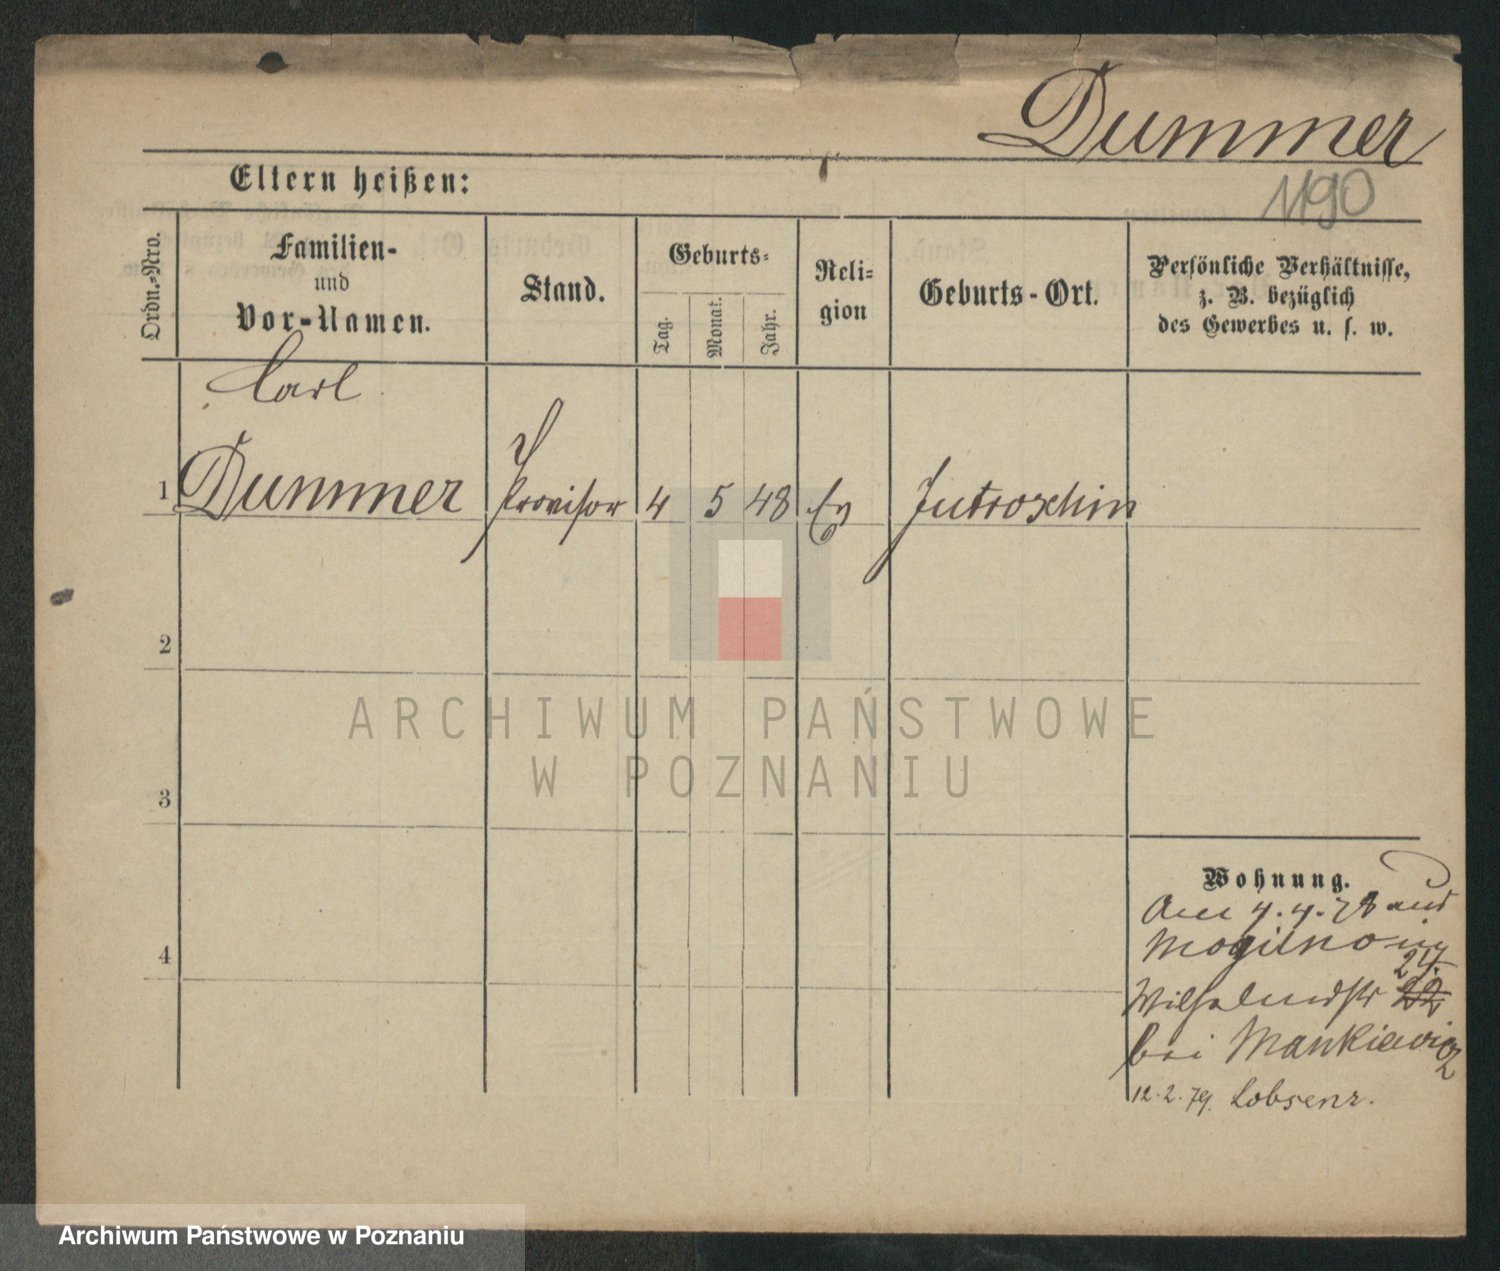 Dummer
1190
Eltern heißen:
Ordn.-Nro.
Familien-
und
Vor-Namen.
Stand.
Geburts-
Tag.
Monat.
Jahr.
Reli-
gion
Geburts-Ort.
Persönliche Verhältnisse,
z. B. bezüglich
des Gewerbes u. s. w.
Carl
1 Dummer Provisor 4 5 48 Ev Jutroschin
2
3
4
Wohnung.
4.4.78 aus
Mogilno in
24.
Wilhelmstr 22
bei Mankiewicz
12.2.79. Lobsenz.
ARCHIWUM PAŃSTWOWE
W POZNANIU
Archiwum Państwowe w Poznaniu